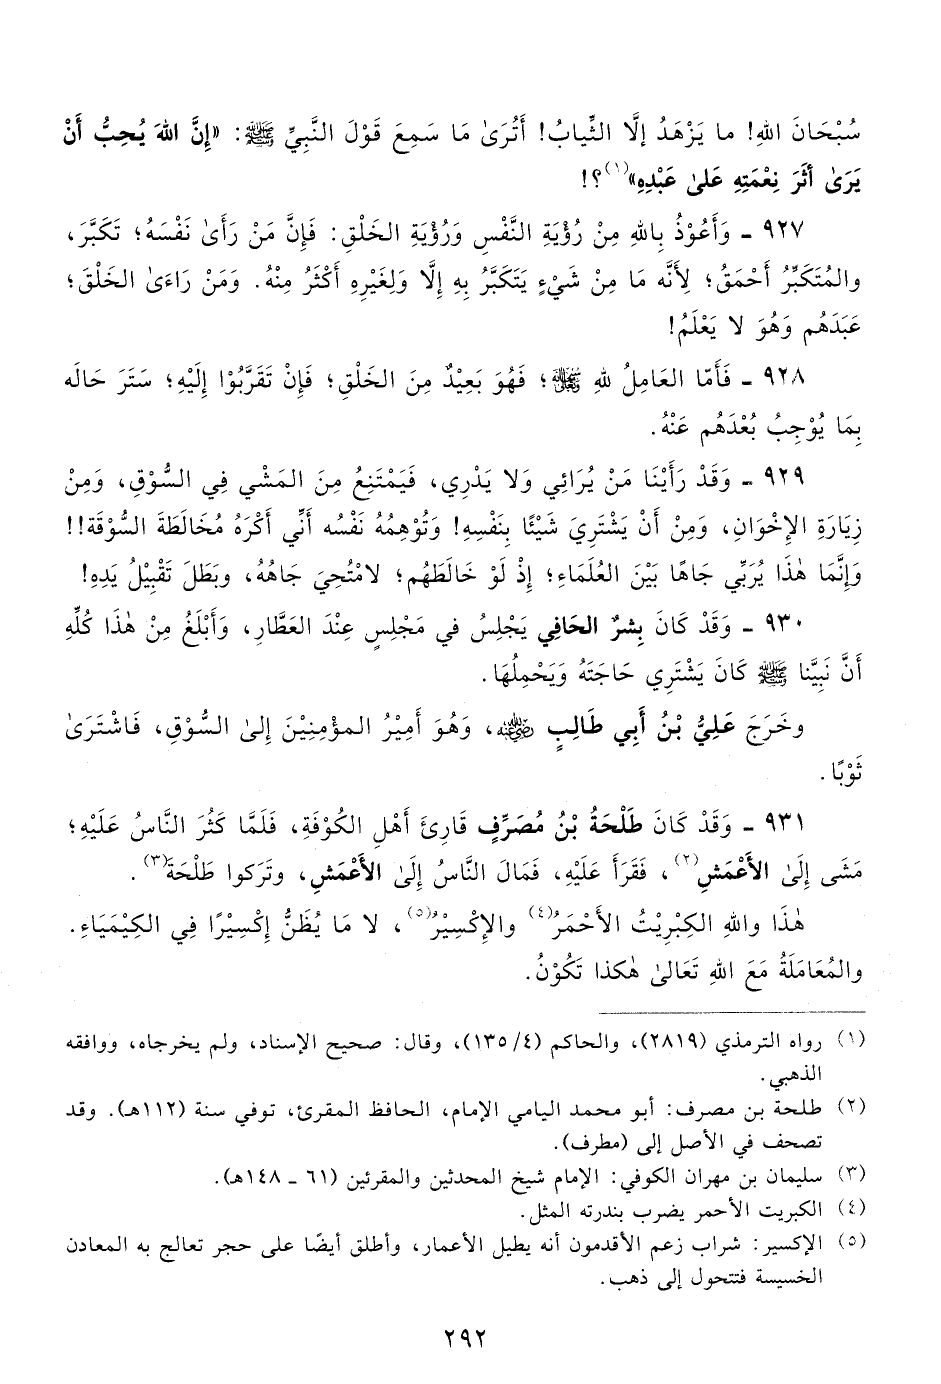 سُبْحَانَ اللهِ! ما يَزْهَدُ إلَّا الثِّيابُ! أَتُرَىٰ مَا سَمِعَ قَوْلَ النَّبِيِّ ﷺ: «إِنَّ اللهَ يُحِبُّ أَنْ
يَرَىٰ أَثَرَ نِعْمَتِهِ عَلىٰ عَبْدِهِ»(١)؟!
٩٢٧ ـ وَأَعُوْذُ بِاللهِ مِنْ رُؤْيَةِ النَّفْسِ وَرُؤْيَةِ الخَلْقِ: فَإِنَّ مَنْ رَأَىٰ نَفْسَهُ؛ تَكَبَّرَ،
والمُتَكَبِّرُ أَحْمَقُ؛ لِأَنَّه مَا مِنْ شَيْءٍ يَتَكَبَّرُ بِهِ إِلَّا وَلِغَيْرِهِ أَكْثَرُ مِنْهُ. وَمَنْ رَاءَىٰ الخَلْقَ؛
عَبَدَهُم وَهُوَ لا يَعْلَمُ!
٩٢٨ ـ فَأَمَّا العَامِلُ للهِ تَعَالَى؛ فَهُوَ بَعِيْدٌ مِنَ الخَلْقِ؛ فَإِنْ تَقَرَّبُوْا إِلَيْهِ؛ سَتَرَ حَالَه
بِمَا يُوْجِبُ بُعْدَهُم عَنْهُ.
٩٢٩ ـ وَقَدْ رَأَيْنَا مَنْ يُرَائِي وَلا يَدْرِي، فَيَمْتَنِعُ مِنَ المَشْيِ فِي السُّوْقِ، وَمِنْ
زِيَارَةِ الإِخْوَانِ، وَمِنْ أَنْ يَشْتَرِيَ شَيْئًا بِنَفْسِهِ! وَتُوْهِمُهُ نَفْسُه أَنِّي أَكْرَهُ مُخَالَطَةَ السُّوْقَة!!
وَإِنَّمَا هٰذَا يُرَبِّي جَاهًا بَيْنَ العُلَمَاءِ؛ إِذْ لَوْ خَالَطَهُم؛ لامْتُحِيَ جَاهُهُ، وبَطَلَ تَقْبِيْلُ يَدِهِ!
٩٣٠ ـ وَقَدْ كَانَ بِشرٌ الحَافِي يَجْلِسُ في مَجْلِسٍ عِنْدَ العَطَّارِ، وَأَبْلَغُ مِنْ هٰذَا كُلِّهِ
أَنَّ نَبِيَّنَا ﷺ كَانَ يَشْتَرِي حَاجَتَهُ وَيَحْمِلُهَا.
وخَرَجَ عَلِيُّ بْنُ أَبِي طَالِبٍ رضي الله عنه، وَهُوَ أَمِيْرُ المؤْمِنِيْنَ إلىٰ السُّوْقِ، فَاشْتَرَىٰ
ثَوْبًا.
٩٣١ ـ وَقَدْ كَانَ طَلْحَةُ بْنُ مُصَرِّفٍ قَارِئَ أَهْلِ الكُوْفَةِ، فَلَمَّا كَثُرَ النَّاسُ عَلَيْهِ؛
مَشَى إِلَىٰ الأَعْمَشِ(٢)، فَقَرَأَ عَلَيْهِ، فَمَالَ النَّاسُ إِلَىٰ الأَعْمَشِ، وتَرَكوا طَلْحَةَ(٣).
هٰذَا واللهِ الكِبْرِيْتُ الأَحْمَرُ(٤) والإِكْسِيْرُ(٥)، لا مَا يُظَنُّ إِكْسِيْرًا فِي الكِيْمَيَاءِ.
والمُعَامَلَةُ مَعَ اللهِ تَعَالىٰ هٰكذا تَكُوْنُ.
(١) رواه الترمذي (٢٨١٩)، والحاكم (٤/ ١٣٥)، وقال: صحيح الإسناد، ولم يخرجاه، ووافقه
الذهبي.
(٢) طلحة بن مصرف: أبو محمد اليامي الإمام، الحافظ المقرئ، توفي سنة (١١٢هـ). وقد
تصحف في الأصل إلى (مطرف).
(٣) سليمان بن مهران الكوفي: الإمام شيخ المحدثين والمقرئين (٦١ ـ ١٤٨هـ).
(٤) الكبريت الأحمر يضرب بندرته المثل.
(٥) الإكسير: شراب زعم الأقدمون أنه يطيل الأعمار، وأطلق أيضًا على حجر تعالج به المعادن
الخسيسة فتتحول إلى ذهب.
٢٩٢